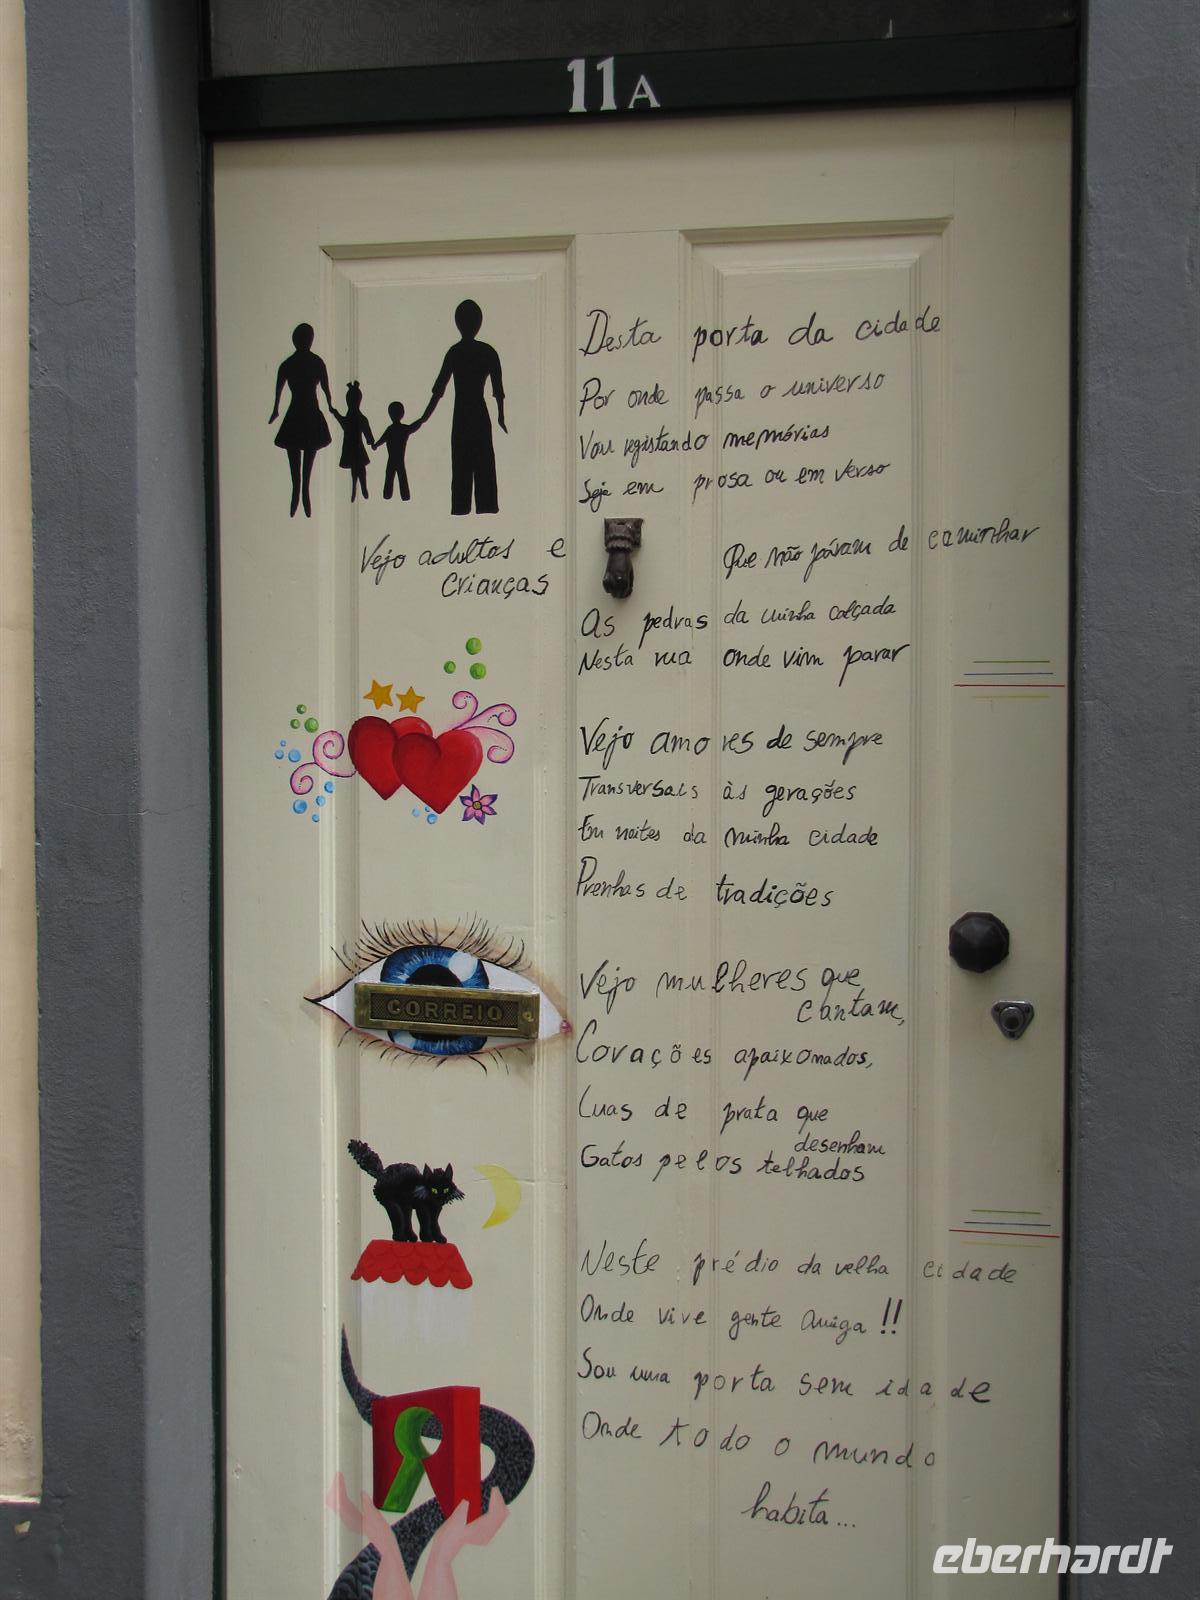 11A
Desta porta da cidade
Por onde passa o universo
Vou registando memórias
Seja em prosa ou em verso
Vejo adultos e
crianças
Que não páram de caminhar
As pedras da minha calçada
Nesta rua onde vim parar
Vejo amores de sempre
Transversais às gerações
Em noites da minha cidade
Prenhas de tradições
Vejo mulheres que
cantam,
Corações apaixonados,
Luas de prata que
desenham
Gatos pelos telhados
CORREIO
Neste prédio da velha cidade
Onde vive gente amiga!!
Sou uma porta sem idade
Onde todo o mundo
habita...
eberhardt